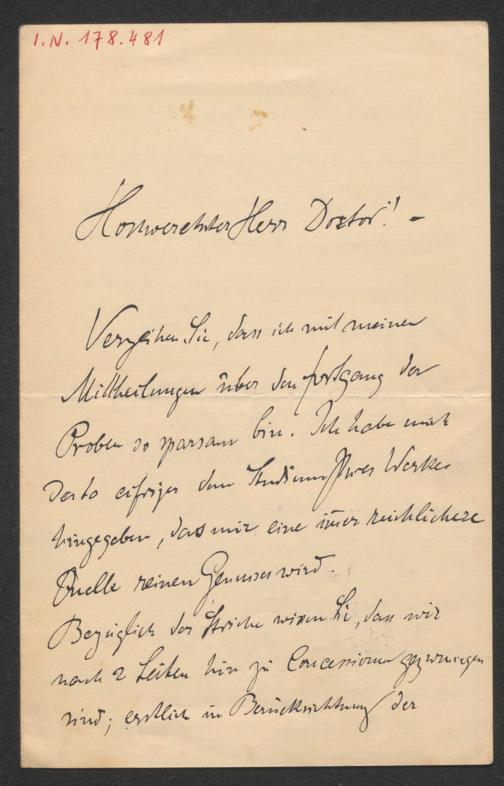 I.N. 178.481
Hochverehrter Herr Doctor! –
Verzeihen Sie, dass ich mit meinen
Mittheilungen über den Fortgang der
Proben so sparsam bin. Ich habe mich
desto eifriger dem Studium Ihres Werkes
hingegeben, das mir eine imer reichlichere
Quelle reinen Genusses wird.
Bezüglich der Striche wissen Sie, dass wir
nach 2 Seiten hin zu Concessionen gezwungen
sind; erstlich in Berücksichtigung der